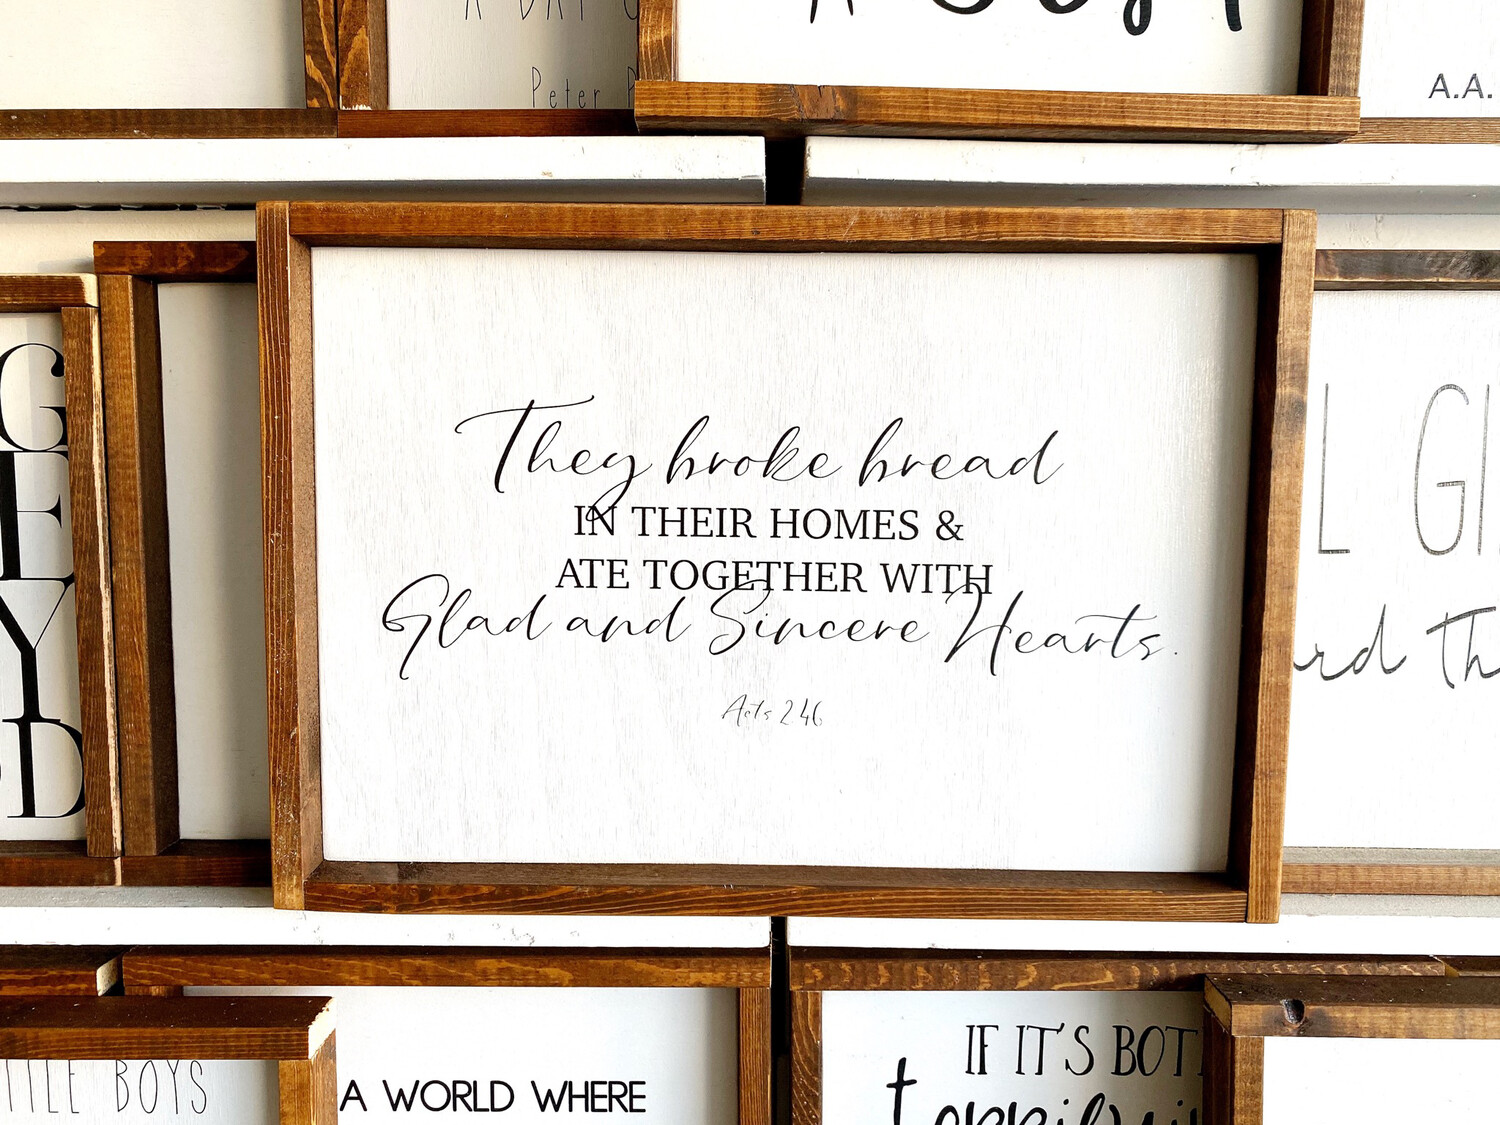 A DAY
Peter
A.A.
G
E
Y
D
They broke bread
IN THEIR HOMES &
ATE TOGETHER WITH
Glad and Sincere Hearts.
Acts 2 46
L GI
rd Th
BOYS
A WORLD WHERE
IF IT'S BOT